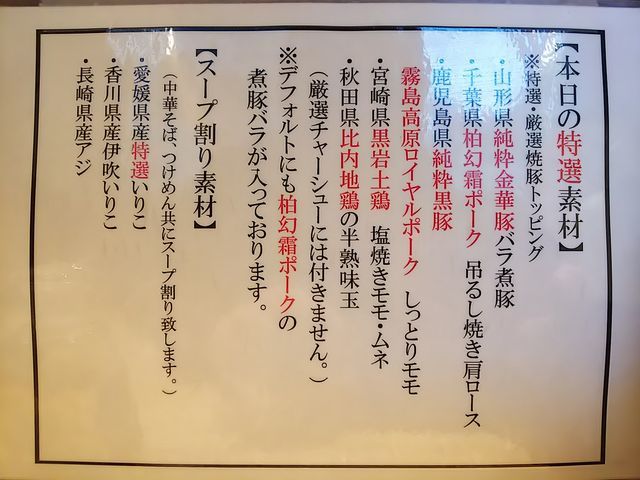 【本日の特選素材】
※特選・厳選焼豚トッピング
・山形県純粋金華豚バラ煮豚
・千葉県柏幻霜ポーク 吊るし焼き肩ロース
・鹿児島県純粋黒豚
霧島高原ロイヤルポーク しっとりモモ
・宮崎県黒岩土鶏 塩焼きモモ・ムネ
・秋田県比内地鶏の半熟味玉
(厳選チャーシューには付きません。)
※デフォルトにも柏幻霜ポークの
煮豚バラが入っております。
【スープ割り素材】
(中華そば、つけめん共にスープ割り致します。)
・愛媛県産特選いりこ
・香川県産伊吹いりこ
・長崎県産アジ